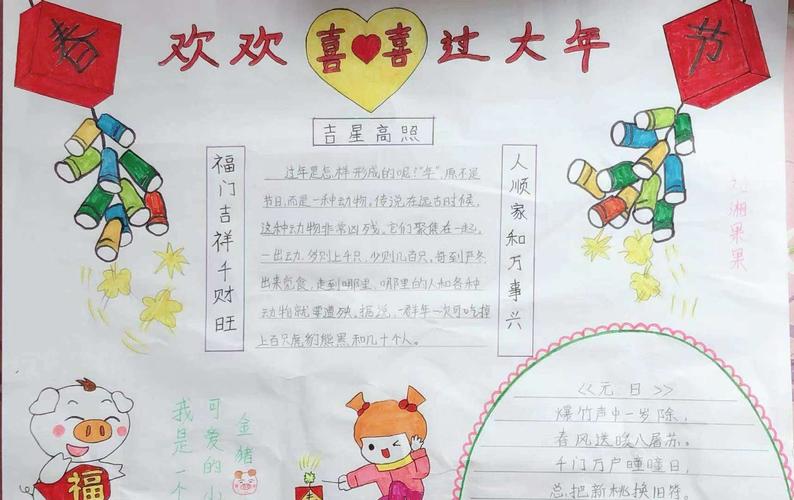 春
欢欢喜喜过大年
节
吉星高照
福门吉祥千财旺
人顺家和万事兴
过年是怎样形成的呢!"年"原不是
节日,而是一种动物,传说在远古时候,
这种动物非常凶残,它们聚集在一起,
一出动,多则上千只,少则几百只,每到严冬
出来觅食,走到哪里,哪里的人和各种
动物就要遭殃,据说,一群年一次可吃掉
上百只虎豹熊黑和几十个人。
湘果果
我是一个
可爱的小
金猪
福
《元日》
爆竹声中一岁除,
春风送暖入屠苏。
千门万户曈曈日,
总把新桃换旧符